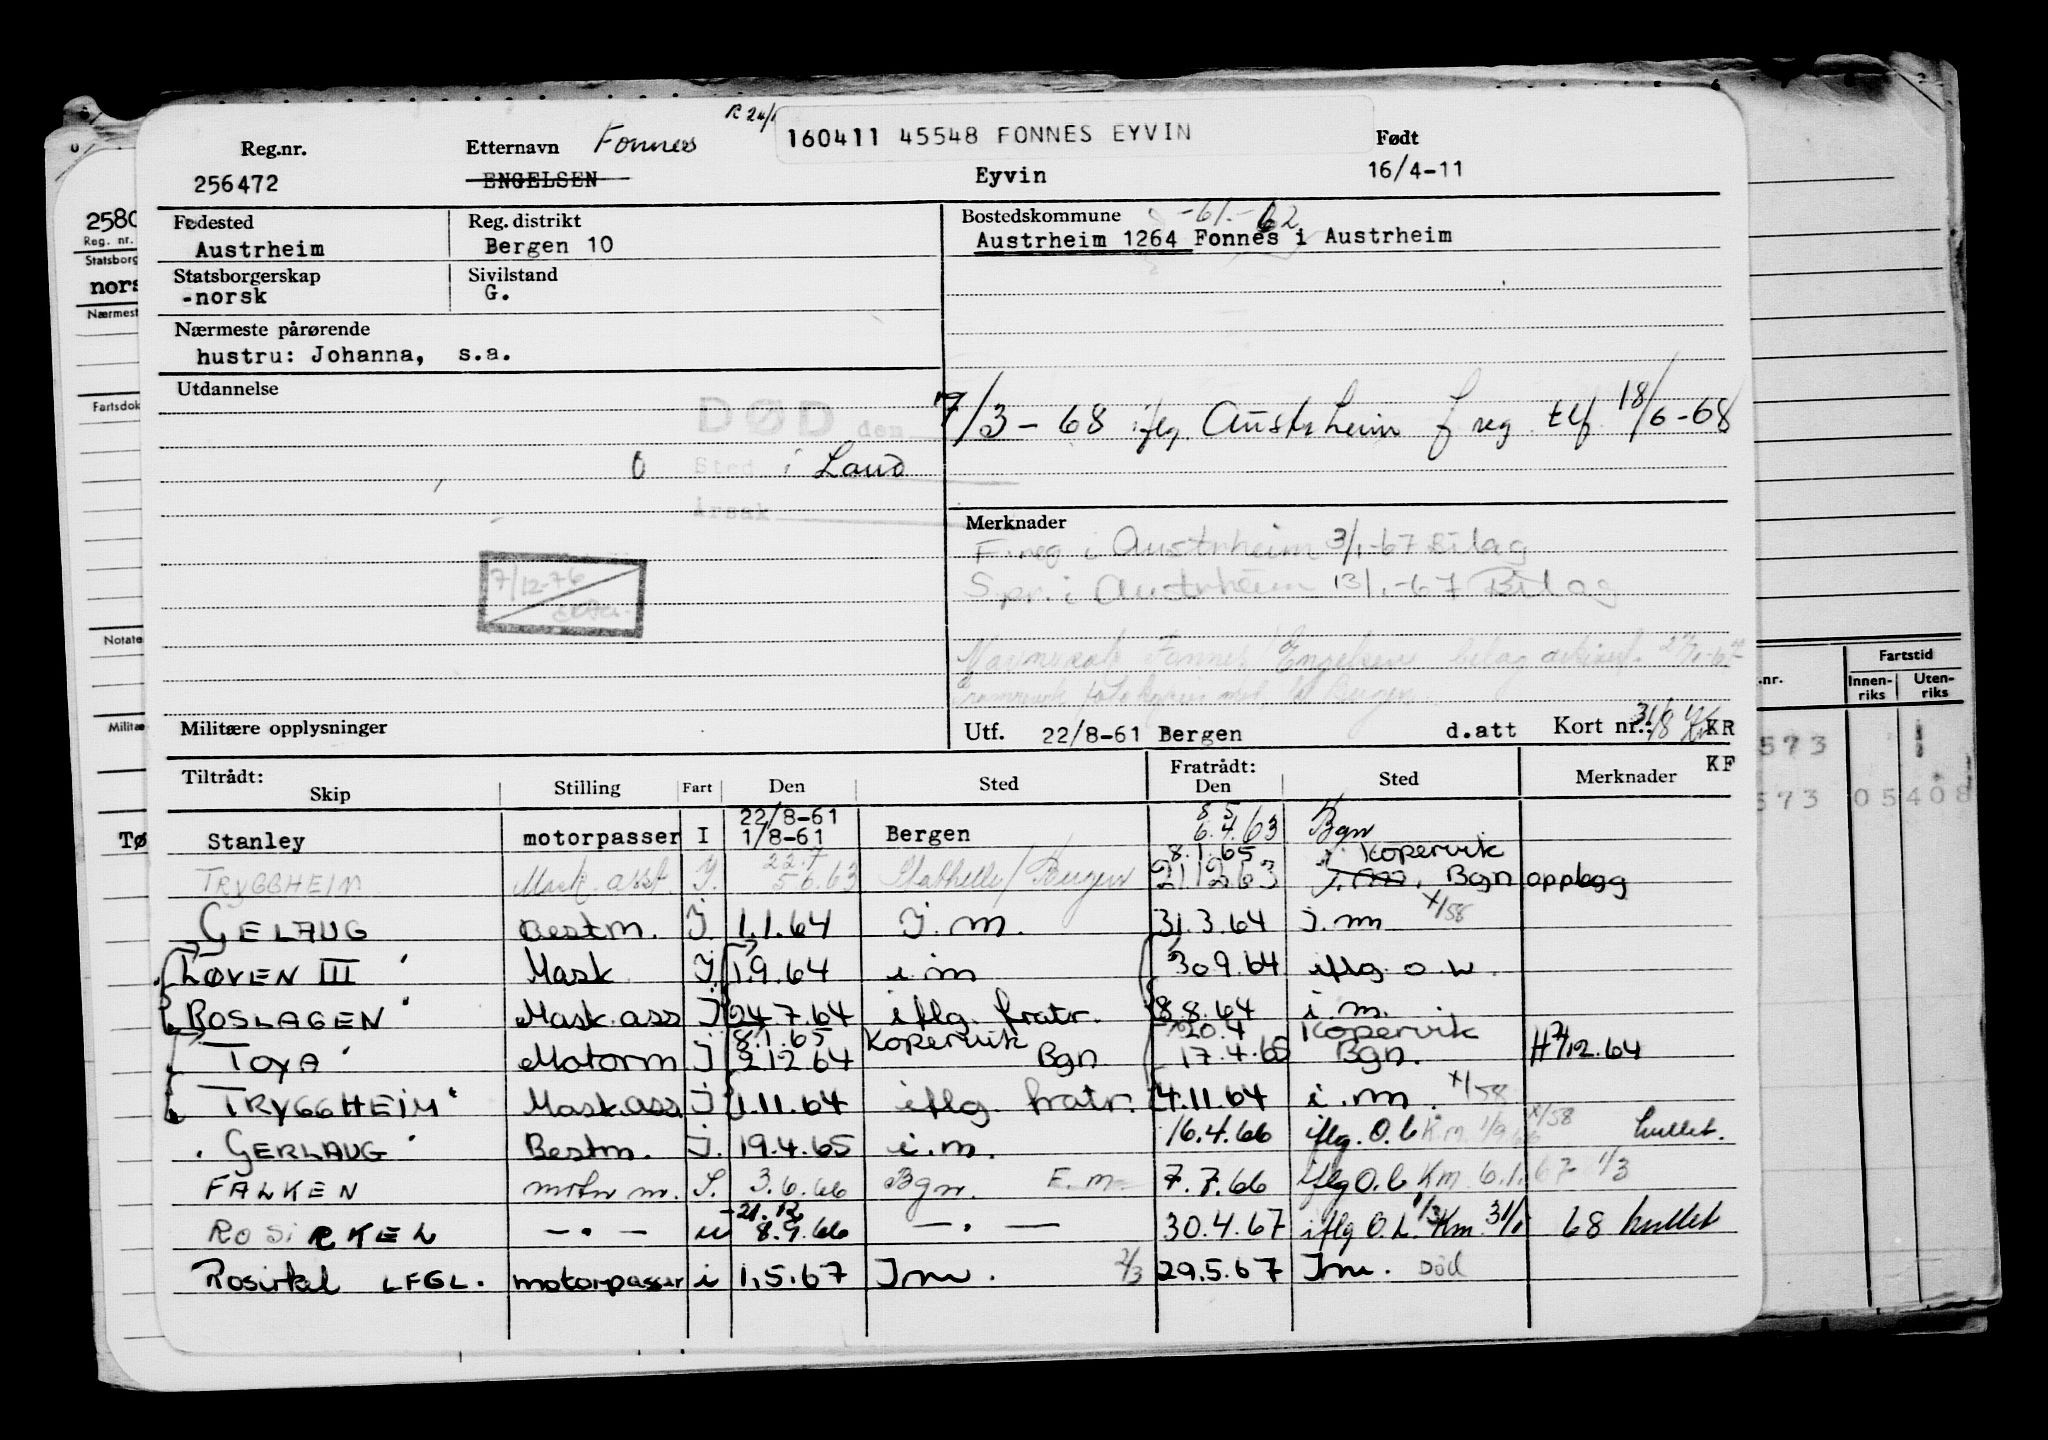 R 24/
160411 45548 FONNES EYVIN
Reg.nr. Etternavn Fonnes Født
256472 ENGELSEN Eyvin 16/4-11
Fødested Reg. distrikt Bostedskommune -61.-62
Austrheim Bergen 10 Austrheim 1264 Fonnes i Austrheim
Statsborgerskap Sivilstand
-norsk G.
Nærmeste pårørende
hustru: Johanna, s.a.
Utdannelse
DØD den 7/3-68 iflg. Austrheim f reg tlf 18/6-68
0 Sted i Land
Årsak
Merknader
F.reg i Austrheim 3/1-67 Bilag
S.pr. i Austrheim 13/1-67 Bilag
7/12-76
Fonnes/Engelsen
Militære opplysninger
Utf. 22/8-61 Bergen d.att Kort nr.: 31/8 KR
KF
Tiltrådt: Skip Stilling Fart Den Sted Fratrådt: Den Sted Merknader
22/8-61 8 5
Stanley motorpasser I 1/8-61 Bergen 6.4.63 Bgn
22.7 8.1.65 Kopervik
TRYGGHEIM Mask. asst I. 5 6.63 Stathelle/Bergen 21 12 63 I.m. Bgn opplagg
GELAUG Bestm. I. 1.1.64 I.m. 31.3.64 I.m x/58
LØVEN III Mask I. 1.9.64 i m 30 9.64 iflg. o.w.
ROSLAGEN Mask.ass I 24.7.64 iflg. fratr. 8.8.64 i.m.
8.1.65 Kopervik 20.4 Kopervik
TOYA Motorm I 2.12.64 Bgn 17.4.65 Bgn. H 2/12.64
TRYGGHEIM Mask.ass I 1.11.64 iflg. fratr. 4.11.64 i.m. x/58
GERLAUG Bestm. I. 19.4.65 i.m. 16.4.66 iflg. O.l Km. 1/9.66 x/58 hullet.
FALKEN motor m. S. 3.6.66 Bgn. E.m 7.7.66 iflg O.l Km 6.1.67 1/3
-21.12
ROSIRKEL — . — u 8.9.66 — . — 30.4.67 iflg O.L. 1/3 Km. 31/1 68 hullet
Rosirkel LFGL. motorpasser i 1.5.67 Im. 2/3 29.5.67 Im. Død
2580
Reg. nr.
Statsborg
nors
Nærmest
Fartsdok
Notate
Militæ
Tø
Fartstid
.nr. Innen-riks Uten-riks
573 1
573 05 408